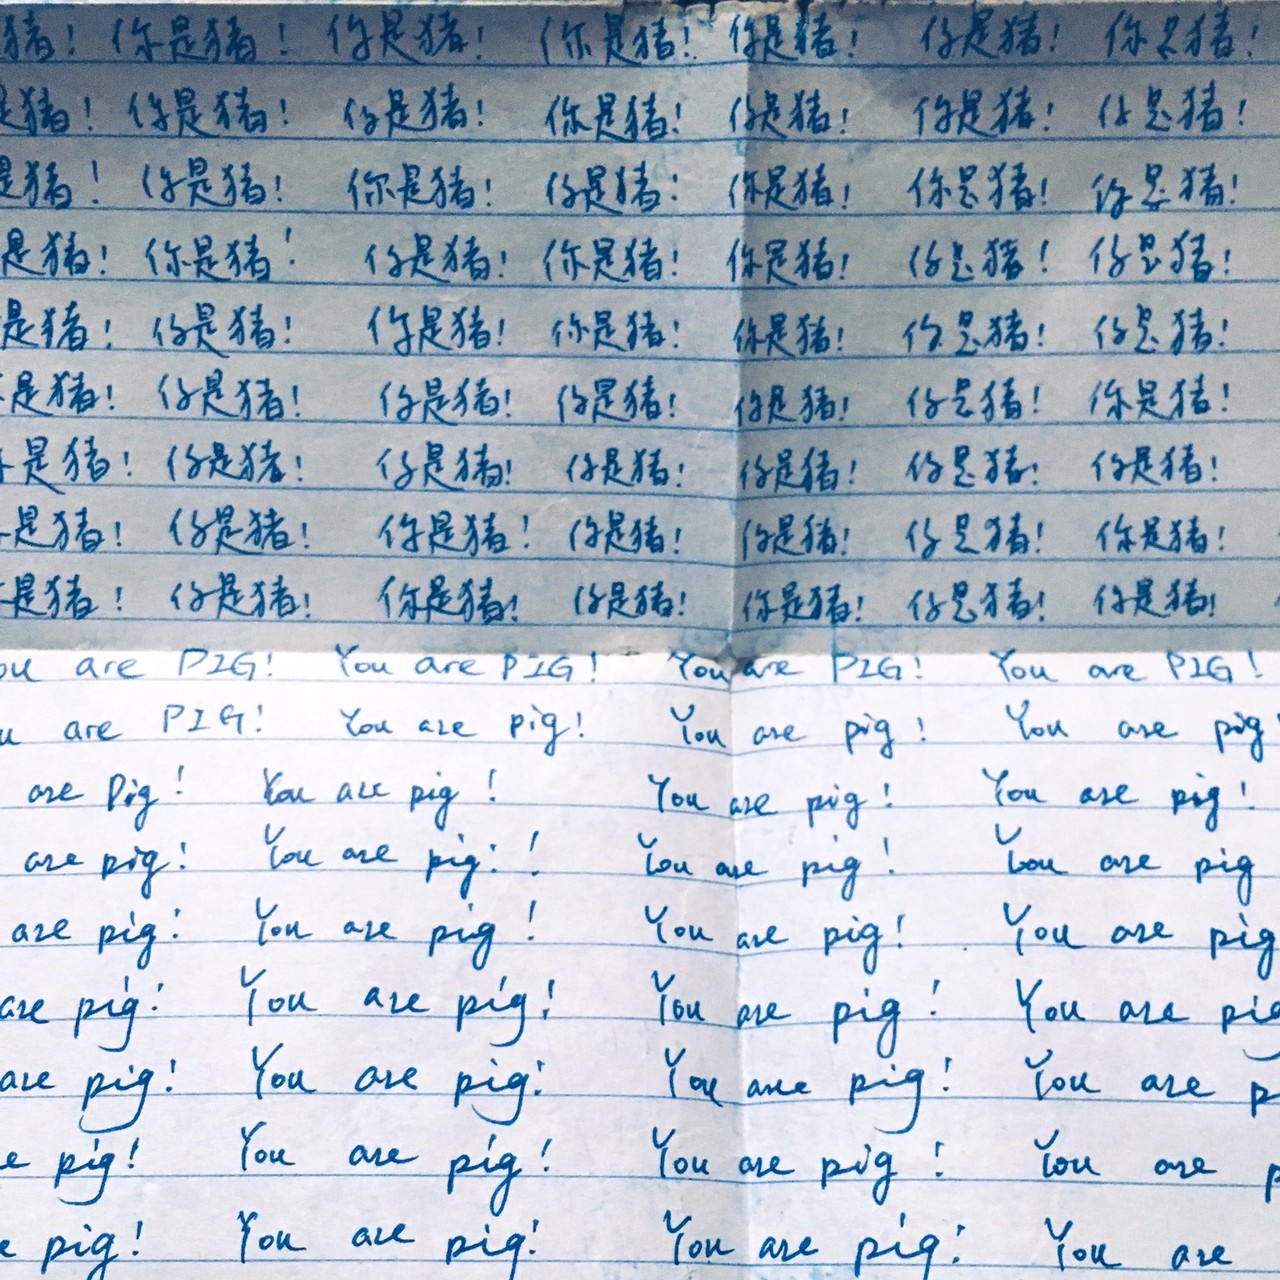 猪! 你是猪! 你是猪! 你是猪! 你是猪! 你是猪! 你是猪!
是猪! 你是猪! 你是猪! 你是猪! 你是猪! 你是猪! 你是猪!
是猪! 你是猪! 你是猪! 你是猪! 你是猪! 你是猪! 你是猪!
是猪! 你是猪! 你是猪! 你是猪! 你是猪! 你是猪! 你是猪!
是猪! 你是猪! 你是猪! 你是猪! 你是猪! 你是猪! 你是猪!
是猪! 你是猪! 你是猪! 你是猪! 你是猪! 你是猪! 你是猪!
是猪! 你是猪! 你是猪! 你是猪! 你是猪! 你是猪! 你是猪!
是猪! 你是猪! 你是猪! 你是猪! 你是猪! 你是猪! 你是猪!
是猪! 你是猪! 你是猪! 你是猪! 你是猪! 你是猪! 你是猪!
ou are PIG! You are PIG! You are PIG! You are PIG!
u are PIG! You are pig! You are pig! You are pig!
are Pig! You are pig! You are pig! You are pig!
are pig! You are pig! You are pig! You are pig
are pig! You are pig! You are pig! You are pig
are pig! You are pig! You are pig! You are pig
are pig! You are pig! You are pig! You are p
e pig! You are pig! You are pig! You are p
e pig! You are pig! You are pig! You are